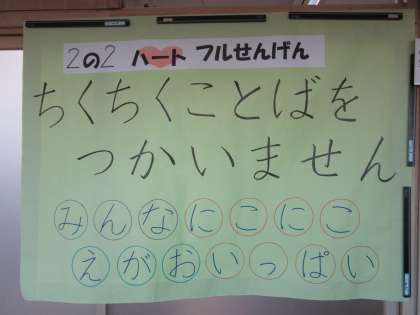 2の2 ハート フルせんげん
ちくちくことばを
つかいません
みんなにこにこ
えがおいっぱい